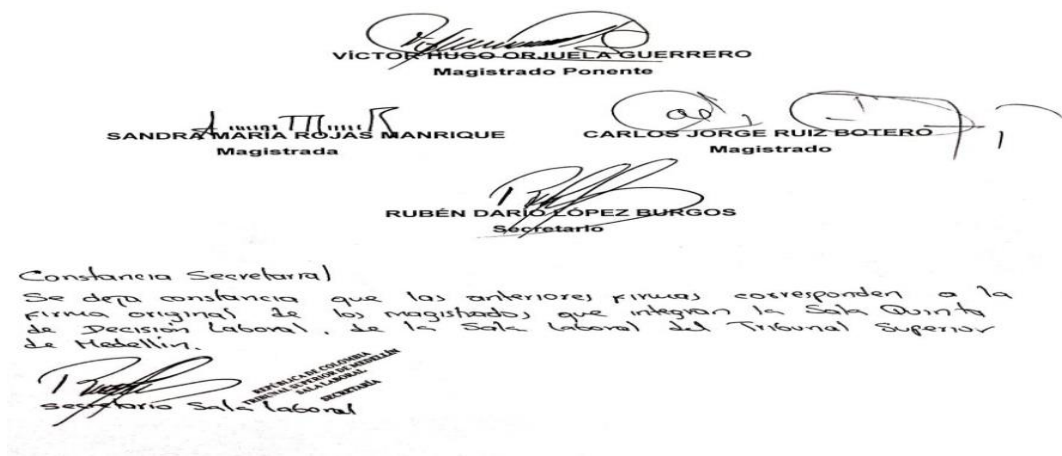 VÍCTOR HUGO ORJUELA GUERRERO
Magistrado Ponente
SANDRA MARÍA ROJAS MANRIQUE
Magistrada
CARLOS JORGE RUIZ BOTERO
Magistrado
RUBÉN DARÍO LÓPEZ BURGOS
Secretario
Constancia Secretarial
Se deja constancia que las anteriores firmas corresponden a la
firma original de los magistrados que integran la Sala Quinta
de Decisión Laboral, de la Sala Laboral del Tribunal Superior
de Medellín.
REPÚBLICA DE COLOMBIA
TRIBUNAL SUPERIOR DE MEDELLÍN
SALA LABORAL
SECRETARÍA
secretario Sala Laboral